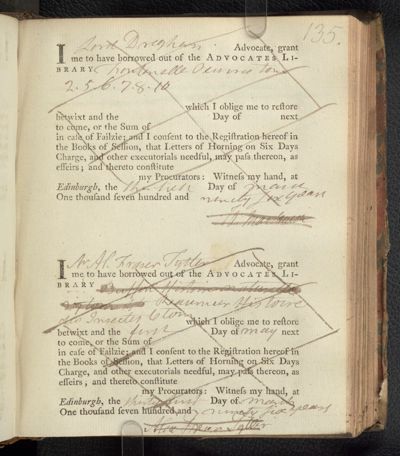 135.
I Lord Dreghorn Advocate, grant
me to have borrowed out of the ADVOCATES LI-
BRARY
2. 5. 6. 7. 8. 10
which I oblige me to reſtore
betwixt and the Day of next
to come, or the Sum of
in caſe of Failzie; and I conſent to the Regiſtration hereof in
the Books of Seſſion, that Letters of Horning on Six Days
Charge, and other executorials needful, may paſs thereon, as
effeirs; and thereto conſtitute
my Procurators: Witneſs my hand, at
Edinburgh, the Day of
One thouſand ſeven hundred and ninety six years
I Mr Al. Fraser Tytler Advocate, grant
me to have borrowed out of the ADVOCATES LI-
BRARY
Reaumur Histoire
des Insectes 6 tom
which I oblige me to reſtore
betwixt and the first Day of may next
to come, or the Sum of
in caſe of Failzie; and I conſent to the Regiſtration hereof in
the Books of Seſſion, that Letters of Horning on Six Days
Charge, and other executorials needful, may paſs thereon, as
effeirs; and thereto conſtitute
my Procurators: Witneſs my hand, at
Edinburgh, the Day of march
One thouſand ſeven hundred and ninety six years
Alex Fraser Tytler